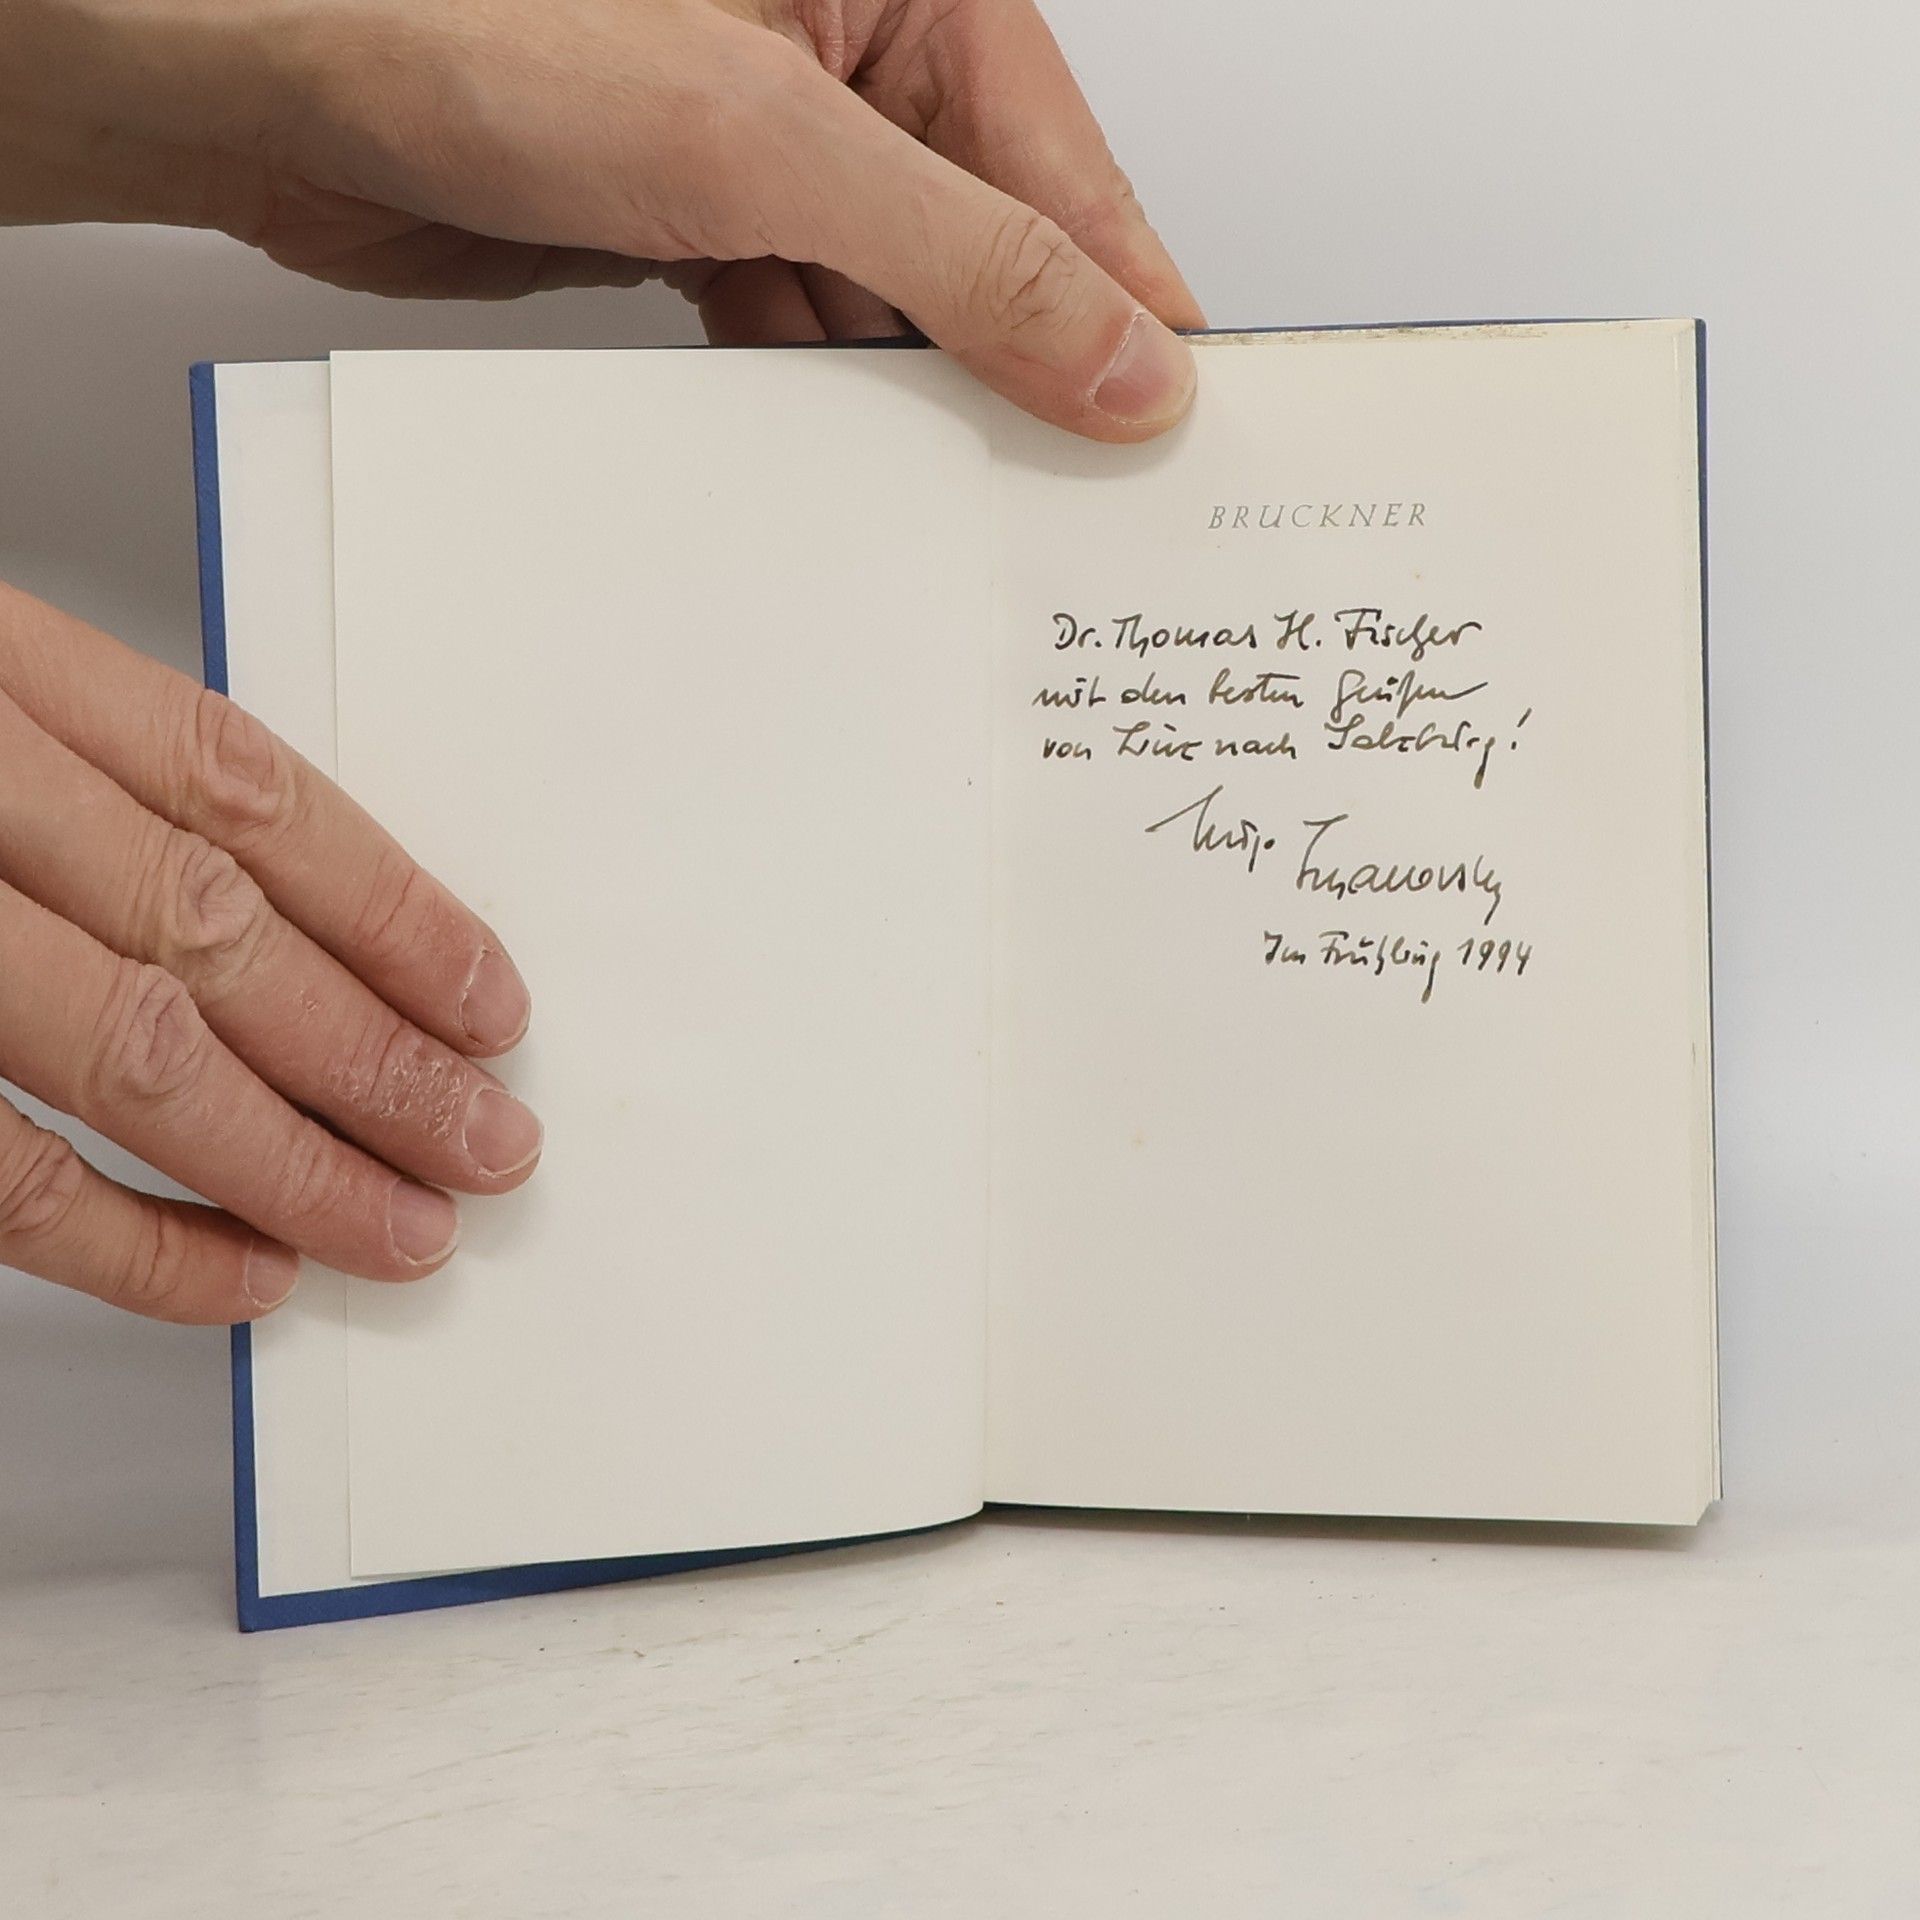 BRUCKNER
Dr. Thomas H. Fischer
mit den besten Grüßen
von Linz nach Salzburg!
Im Frühling 1994